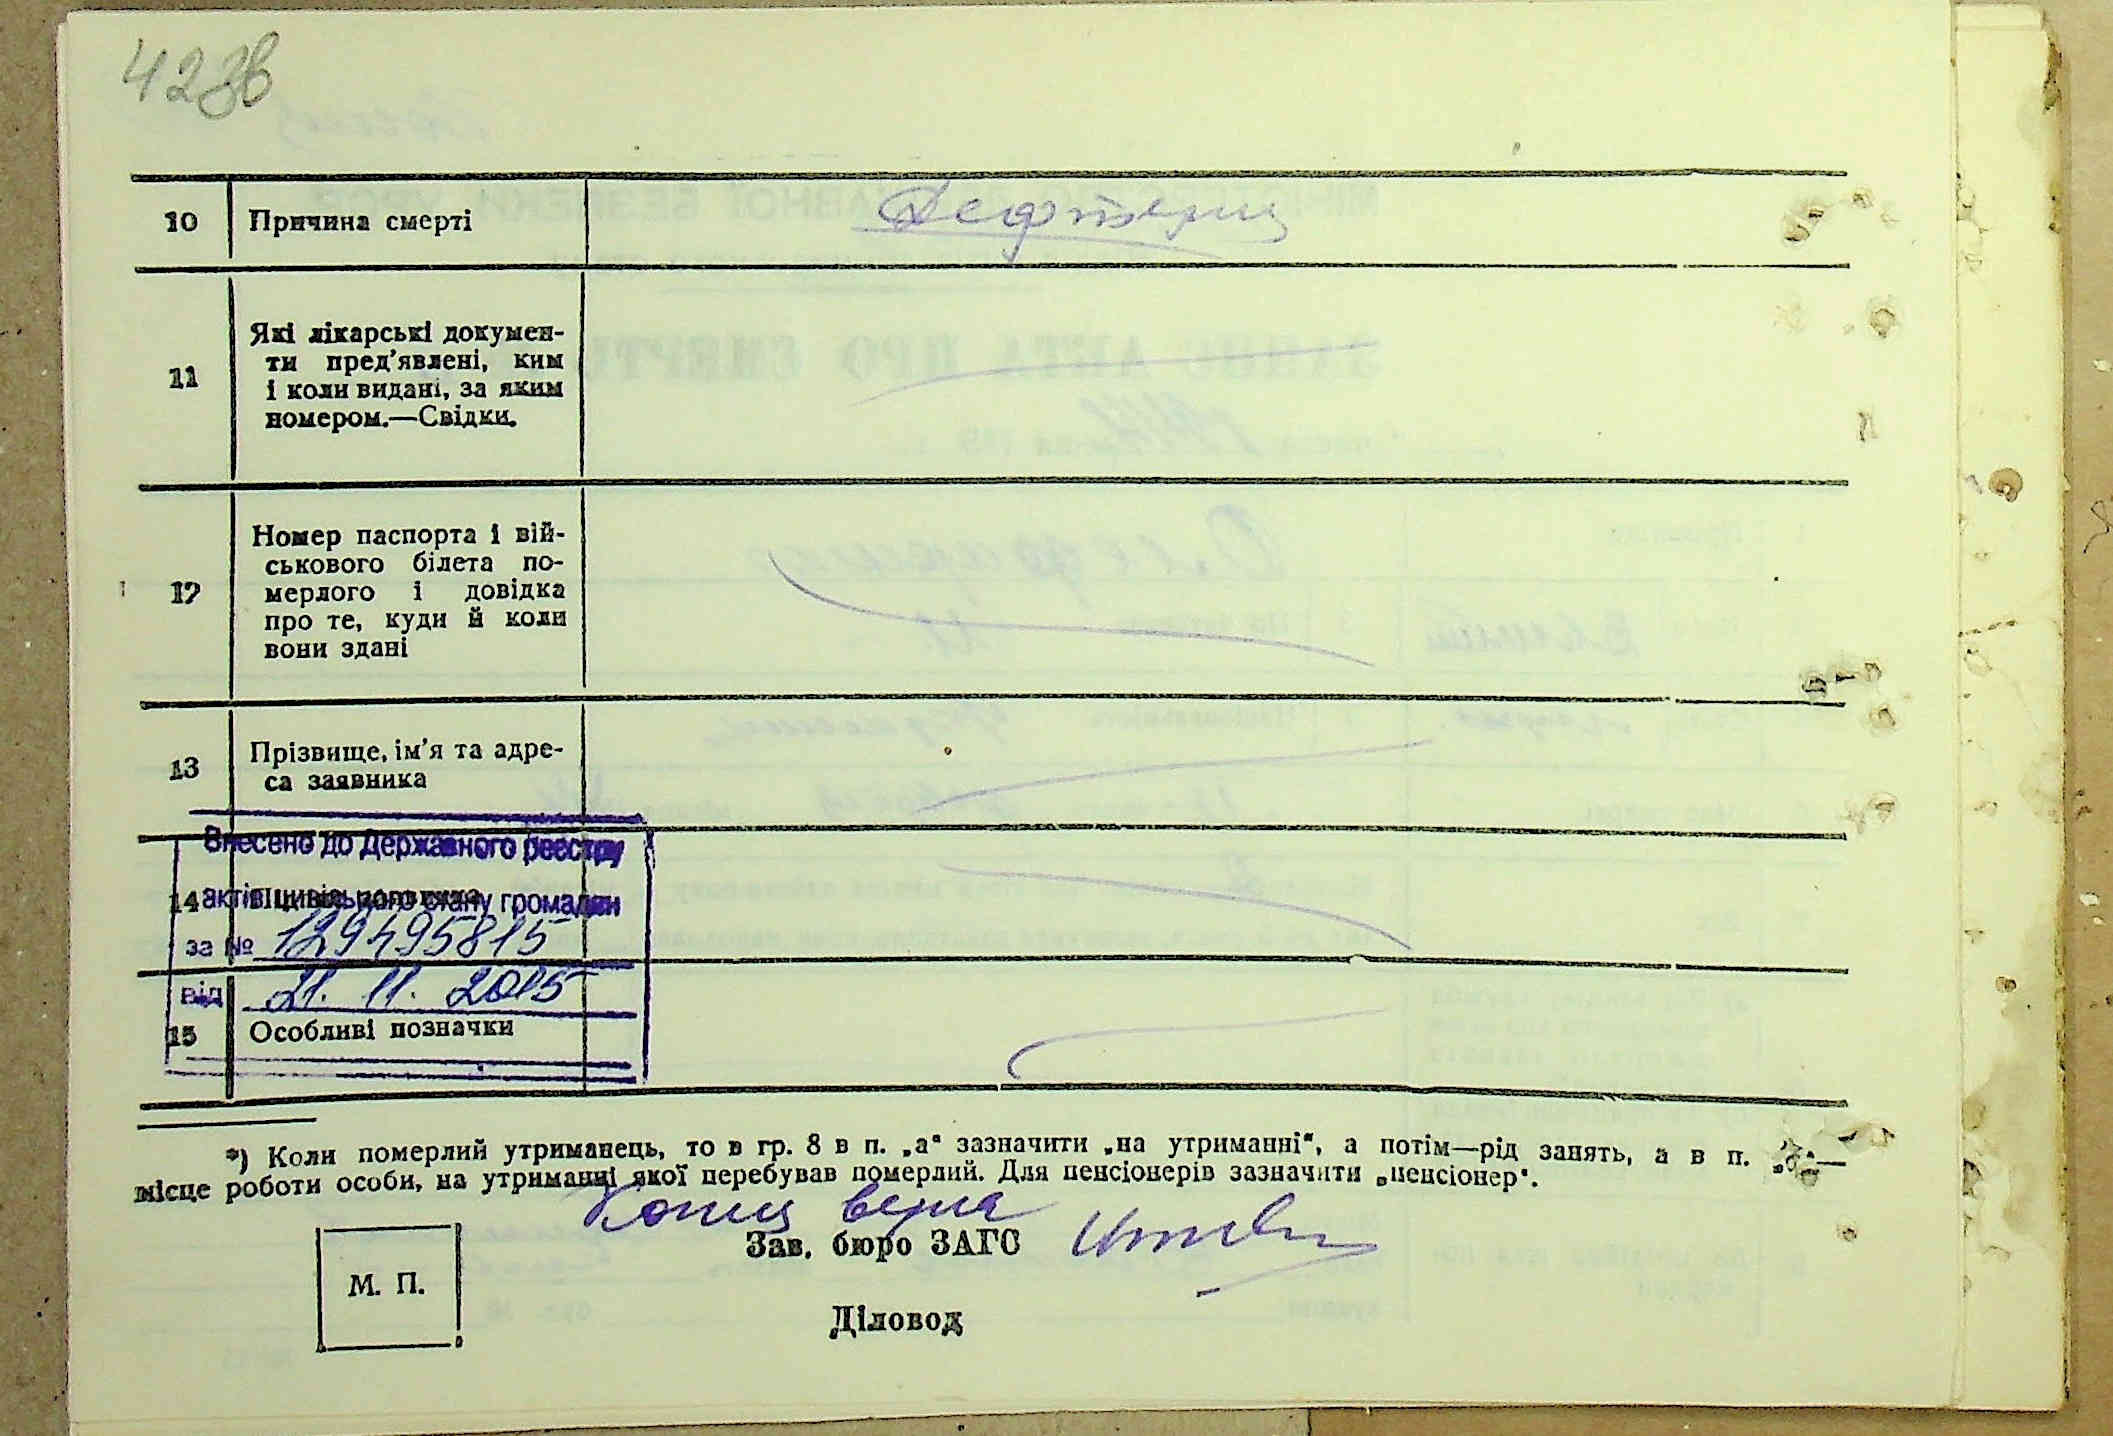 423в
10 Причина смерті Дефтерия
11 Які лікарські докумен-
ти пред'явлені, ким
і коли видані, за яким
номером.—Свідки.
12 Номер паспорта і вій-
ськового білета по-
мерлого і довідка
про те, куди й коли
вони здані
13 Прізвище, ім'я та адре-
са заявника
Внесено до Державного реєстру
14 актів цивільного стану громадян
за № 129495815
від 21. 11. 2015
15 Особливі позначки
*) Коли померлий утриманець, то в гр. 8 в п. „а“ зазначити „на утриманні“, а потім—рід занять, а в п. „б“—
місце роботи особи, на утриманні якої перебував померлий. Для пенсіонерів зазначити „пенсіонер“.
Копия верна
Зав. бюро ЗАГС
М. П.
Діловод